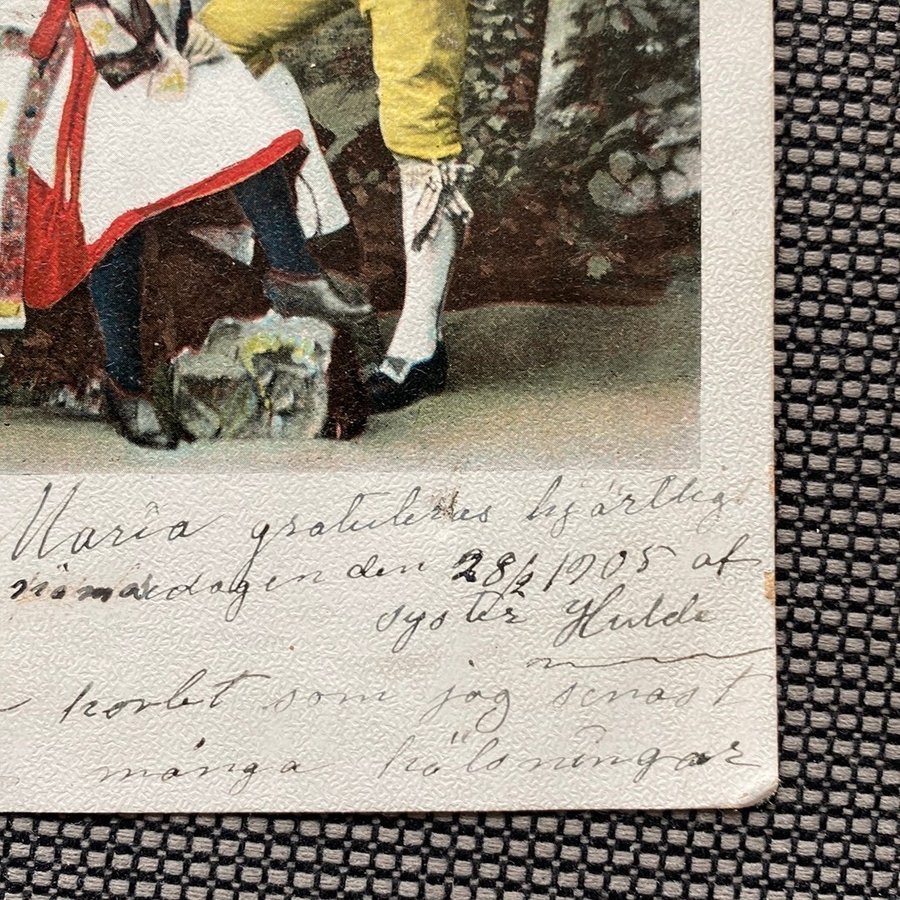 Maria gratuleras hjärtligt
nämndedagen den 28/2 1905 af
syster Hulda
kortet som jag senast
många hälsningar